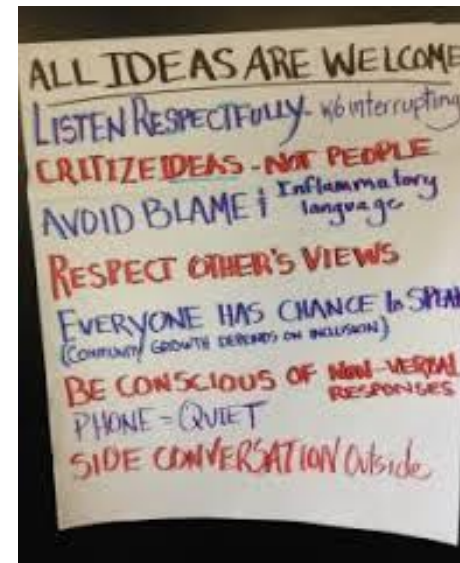 ALL IDEAS ARE WELCOME
LISTEN RESPECTFULLY - w/o interrupting
CRITIZE IDEAS - NOT PEOPLE
AVOID BLAME & Inflammatory
language
RESPECT OTHER'S VIEWS
EVERYONE HAS CHANCE to SPEAK
(COMMUNITY GROWTH DEPENDS ON INCLUSION)
BE CONSCIOUS OF NON-VERBAL
RESPONSES
PHONE = QUIET
SIDE CONVERSATION Outside